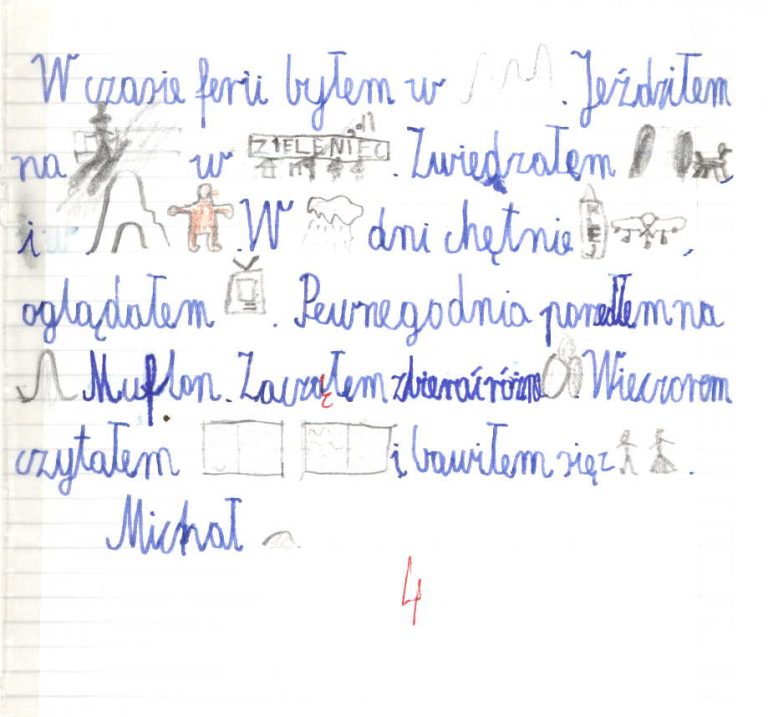 W czasie ferii byłem w . Jeździłem
na w ZIELENIEC . Zwiedzałem ,
i . W dni chętnie KEJ ,
oglądałem . Pewnego dnia poszedłem na
Muflon. Zacząłem zbierać różne . Wieczorem
czytałem i bawiłem się z .
Michał
4